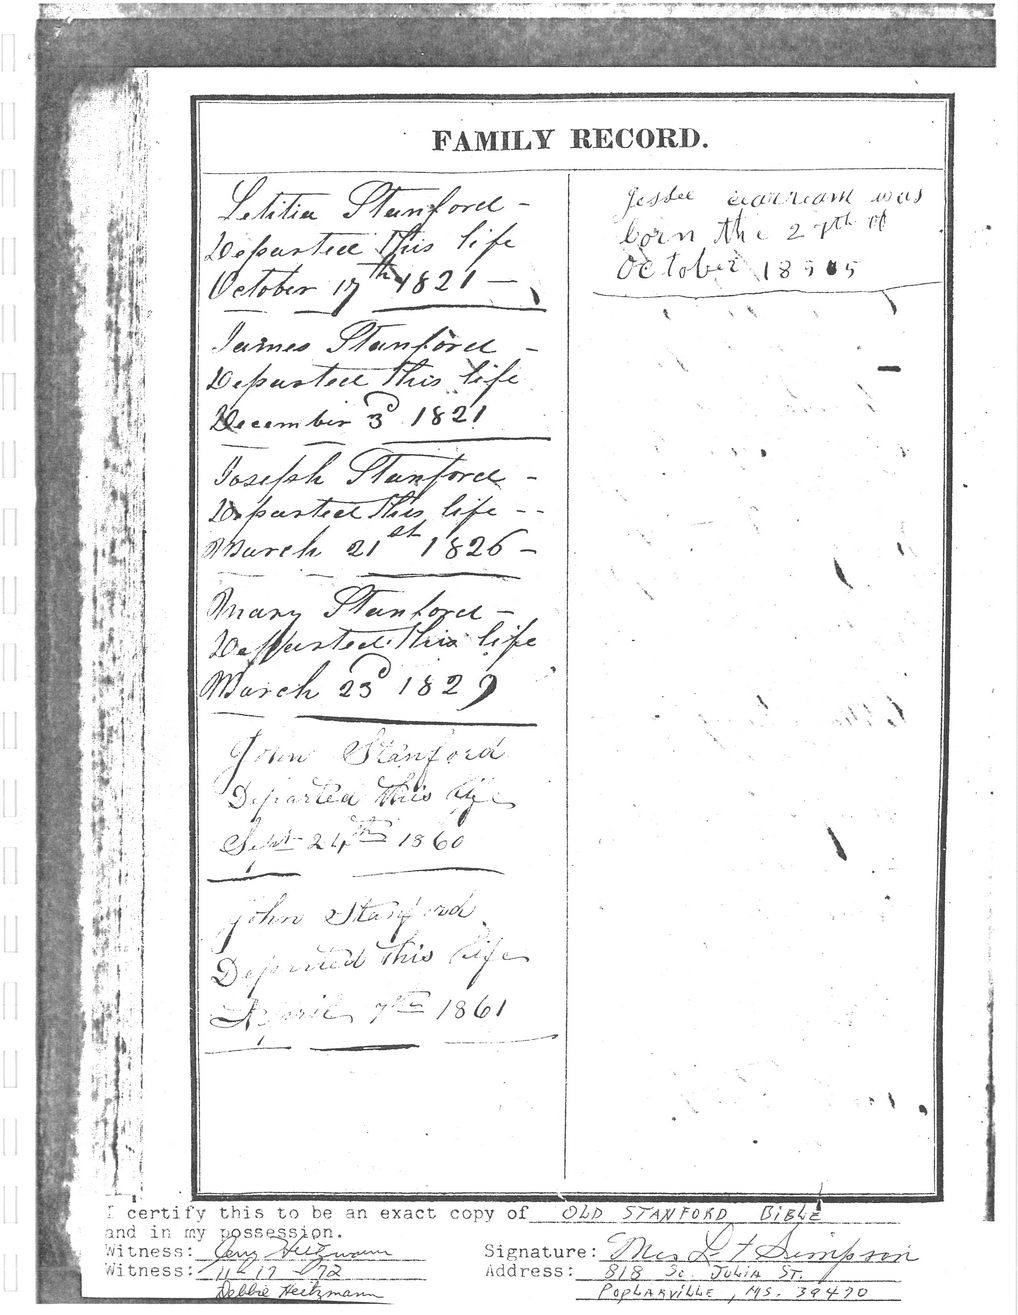 FAMILY RECORD.
Letitia Stanford -
Departed this life
October 17th 1821 -
James Stanford -
Departed this life
December 3d 1821
Joseph Stanford -
Departed this life --
March 21st 1826 -
Mary Stanford -
Departed this life
March 23d 1829
John Stanford
Departed this life
Sept 24th 1860
John Stanford
Departed this life
April 7th 1861
Jessee was
born the 27th of
October 185 5
I certify this to be an exact copy of OLD STANFORD BIBLE
and in my possession.
Witness: Heitzmann
Witness: 11-17-72
Debbie Heitzmann
Signature: Mrs L F Simpson
Address: 818 So. JULIA ST.
POPLARVILLE, MS. 39470